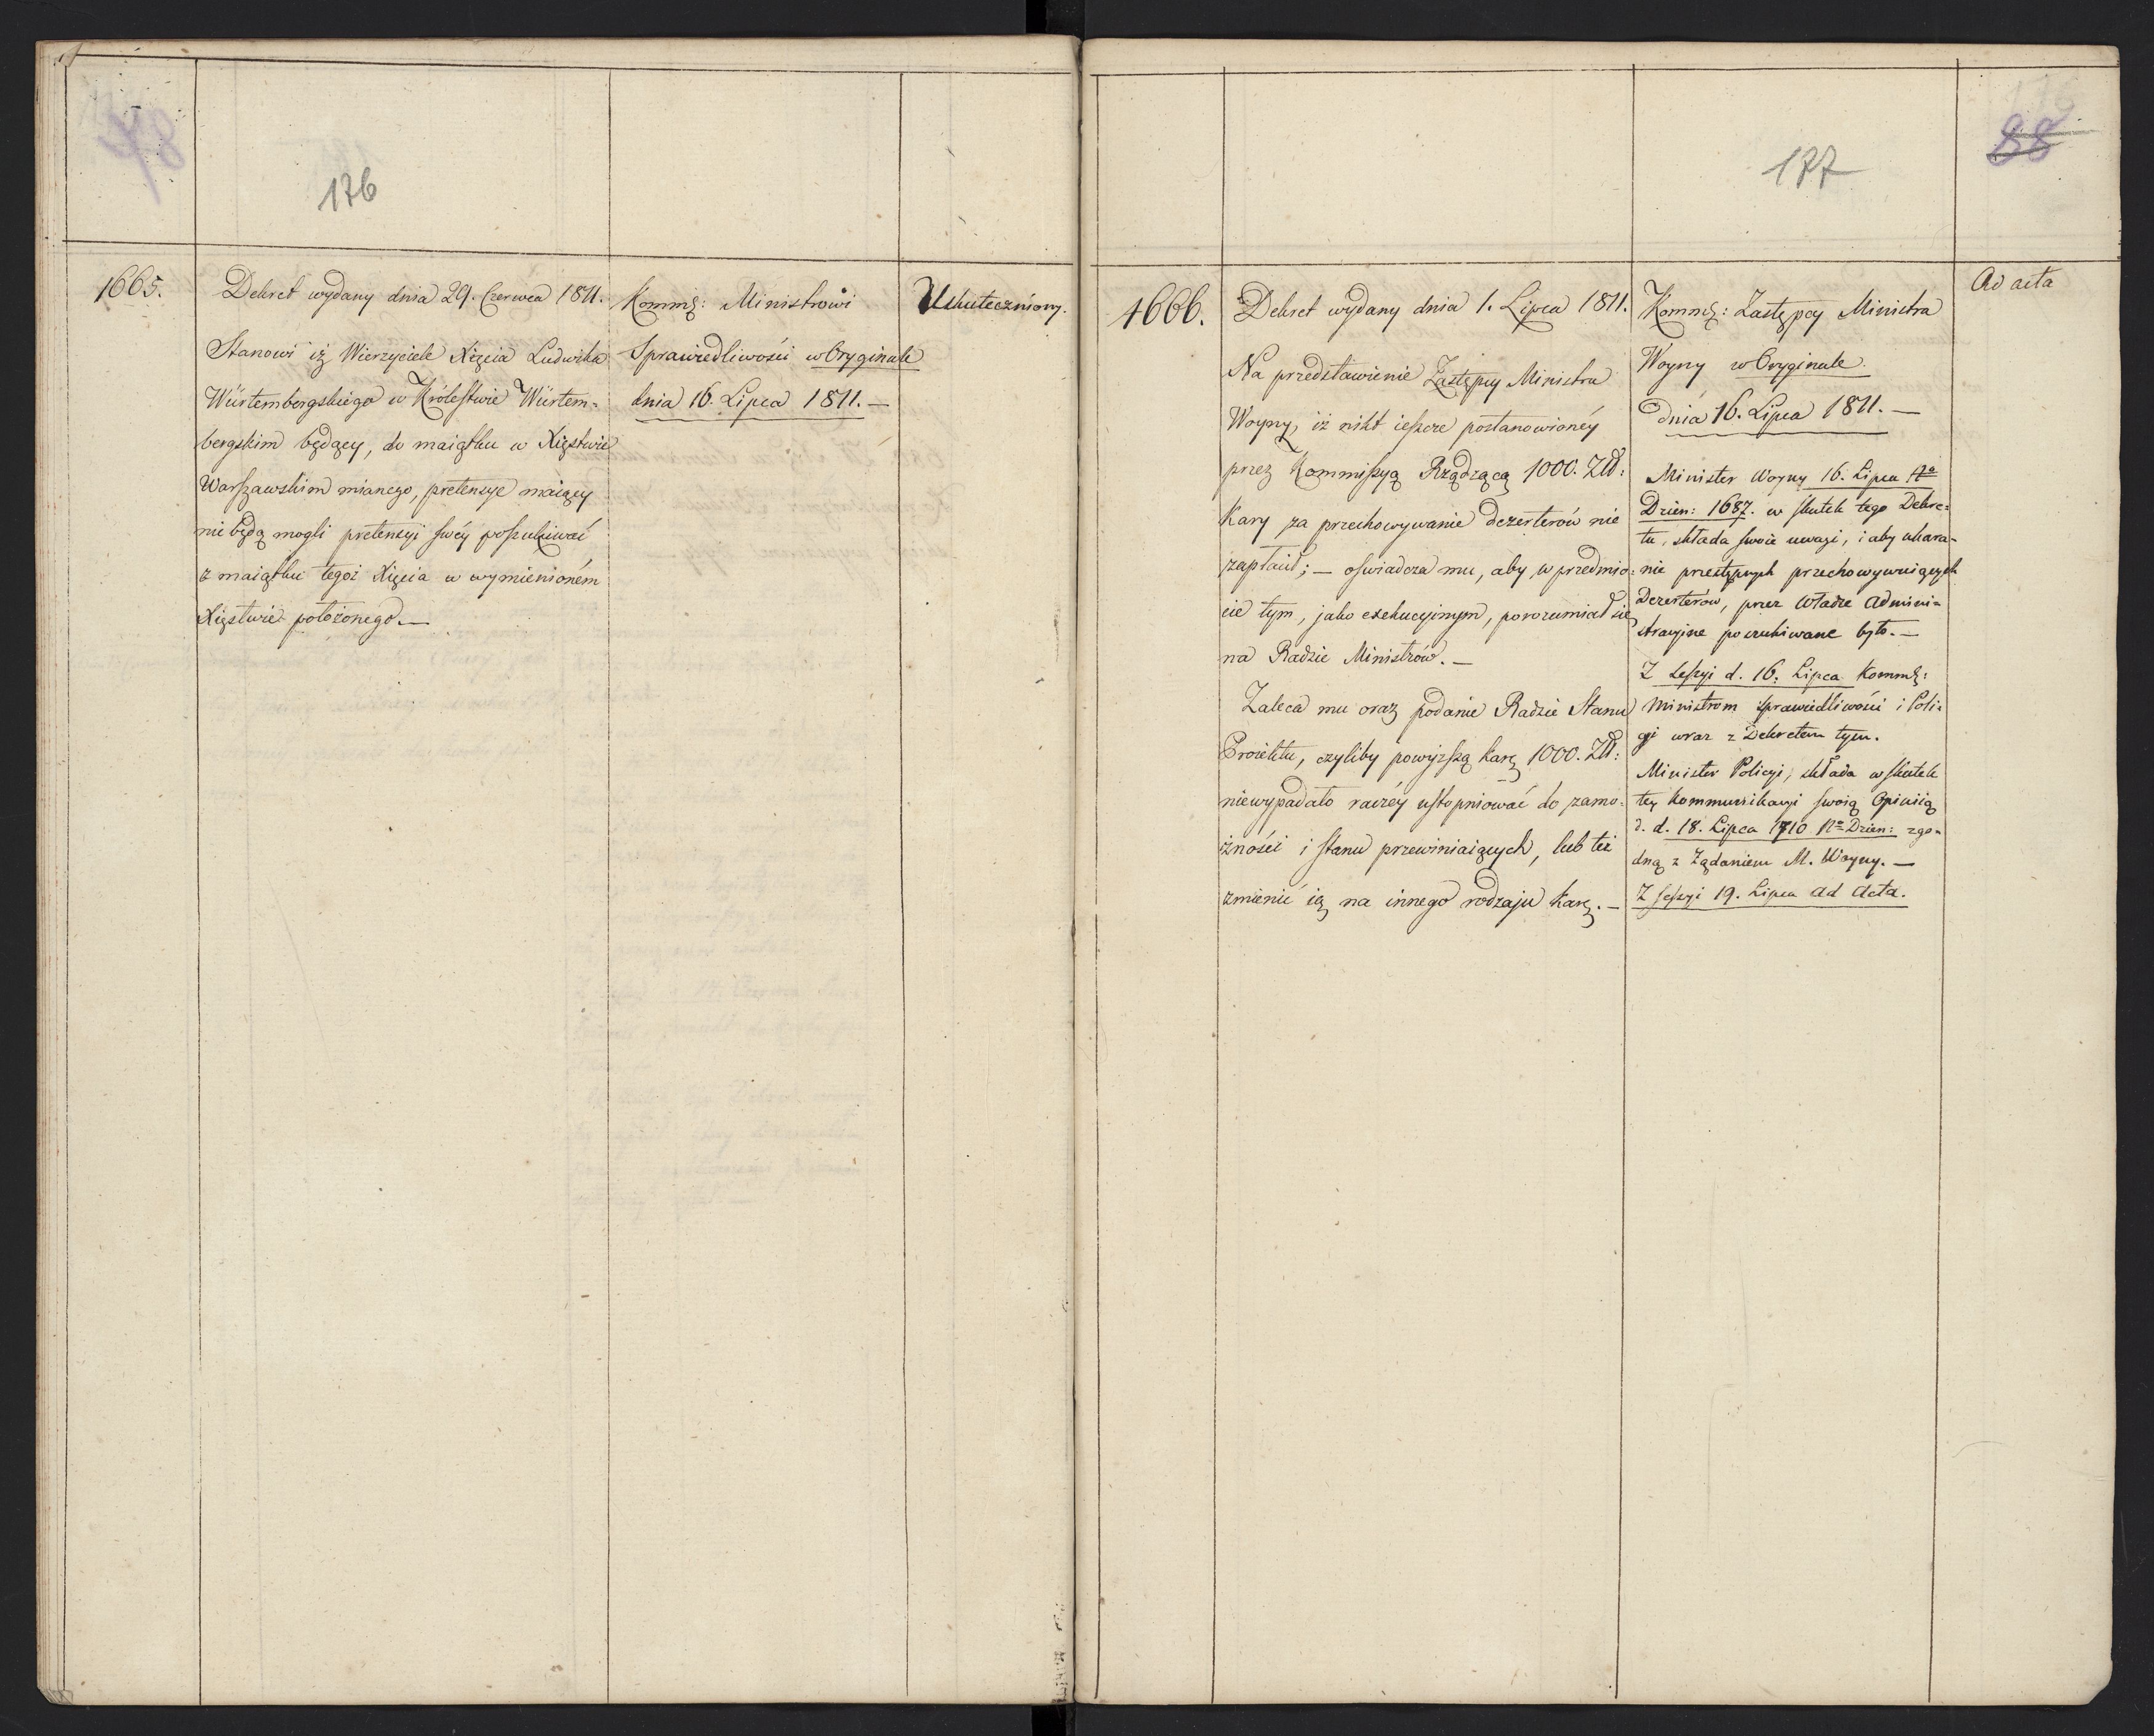 176
1665.
Dekret wydany dnia 29. Czerwca 1811.
Stanowi iż Wierzyciele Xięcia Ludwika
Würtembergskiego w Królestwie Würtem-
bergskim będący, do maiątku w Xięstwie
Warszawskim mianego, pretensye maiący
nie będą mogli pretensyi swéy poszukiwać
z maiątku tegoż Xięcia w wymienioném
Xięstwie położonego.—
Kommq: Ministrowi
Sprawiedliwości w Oryginale
dnia 16. Lipca 1811.—
Uskuteczniony.
177
88
1666.
Dekret wydany dnia 1. Lipca 1811.
Na przedstawienie Zastępcy Ministra
Woyny, iż nikt ieszcze postanowionéy
przez Kommissyą Rządzącą 1000. Złł:
Kary za przechowywanie dezerterów nie
zapłacił; — oświadcza mu, aby w przedmio-
cie tym, jako exekucyjnym, porozumiał się
na Radzie Ministrów.—
Zaleca mu oraz podanie Radzie Stanu
Proiektu, czyliby powyższą karę 1000. Złł:
niewypadało raczéy ustopniować do zamo-
żności i stanu przewiniaiących, lub też
zmienić ią na innego rodzaju karę.—
Kommq: Zastępcy Ministra
Woyny w Oryginale.
dnia 16. Lipca 1811.—
Minister Woyny 16. Lipca No
Dzien: 1687. w skutek tego Dekre-
tu, składa swoie uwagi, i aby ukara-
nie przestępnych przechowywaiących
Dezerterów, przez Władze Admini-
stracyjne poszukiwane było.—
Z Sessyi d. 16. Lipca Kommq:
Ministrom sprawiedliwości i Poli-
cyi wraz z Dekretem tym.
Minister Policyi, składa w skutek
tey kommunikacyi swoią Opiniią
d. d. 18. Lipca 1710 No Dzien: zgo-
dną z Żądaniem M. Woyny.—
Z sessyi 19. Lipca ad Acta.
Ad acta